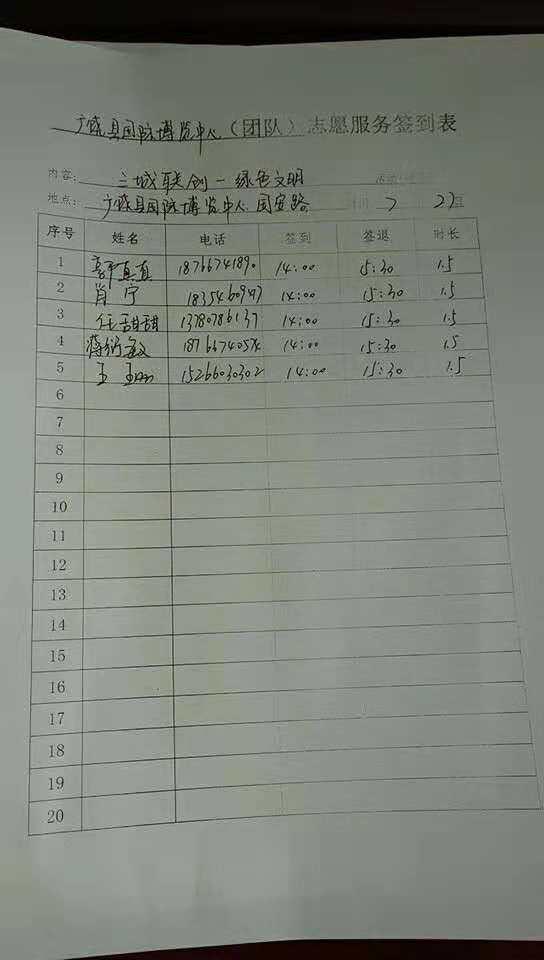 广饶县国际博览中心（团队）志愿服务签到表
内容：三城联创－绿色文明
地点：广饶县国际博览中心 国安路 7 27日
序号 姓名 电话 签到 签退 时长
1 郭真真 18766741890 14:00 15:30 1.5
2 肖宁 14:00 15:30 1.5
3 任甜甜 13780786137 14:00 15:30 1.5
4 14:00 15:30 1.5
5 王 15266030302 14:00 15:30 1.5
6
7
8
9
10
11
12
13
14
15
16
17
18
19
20